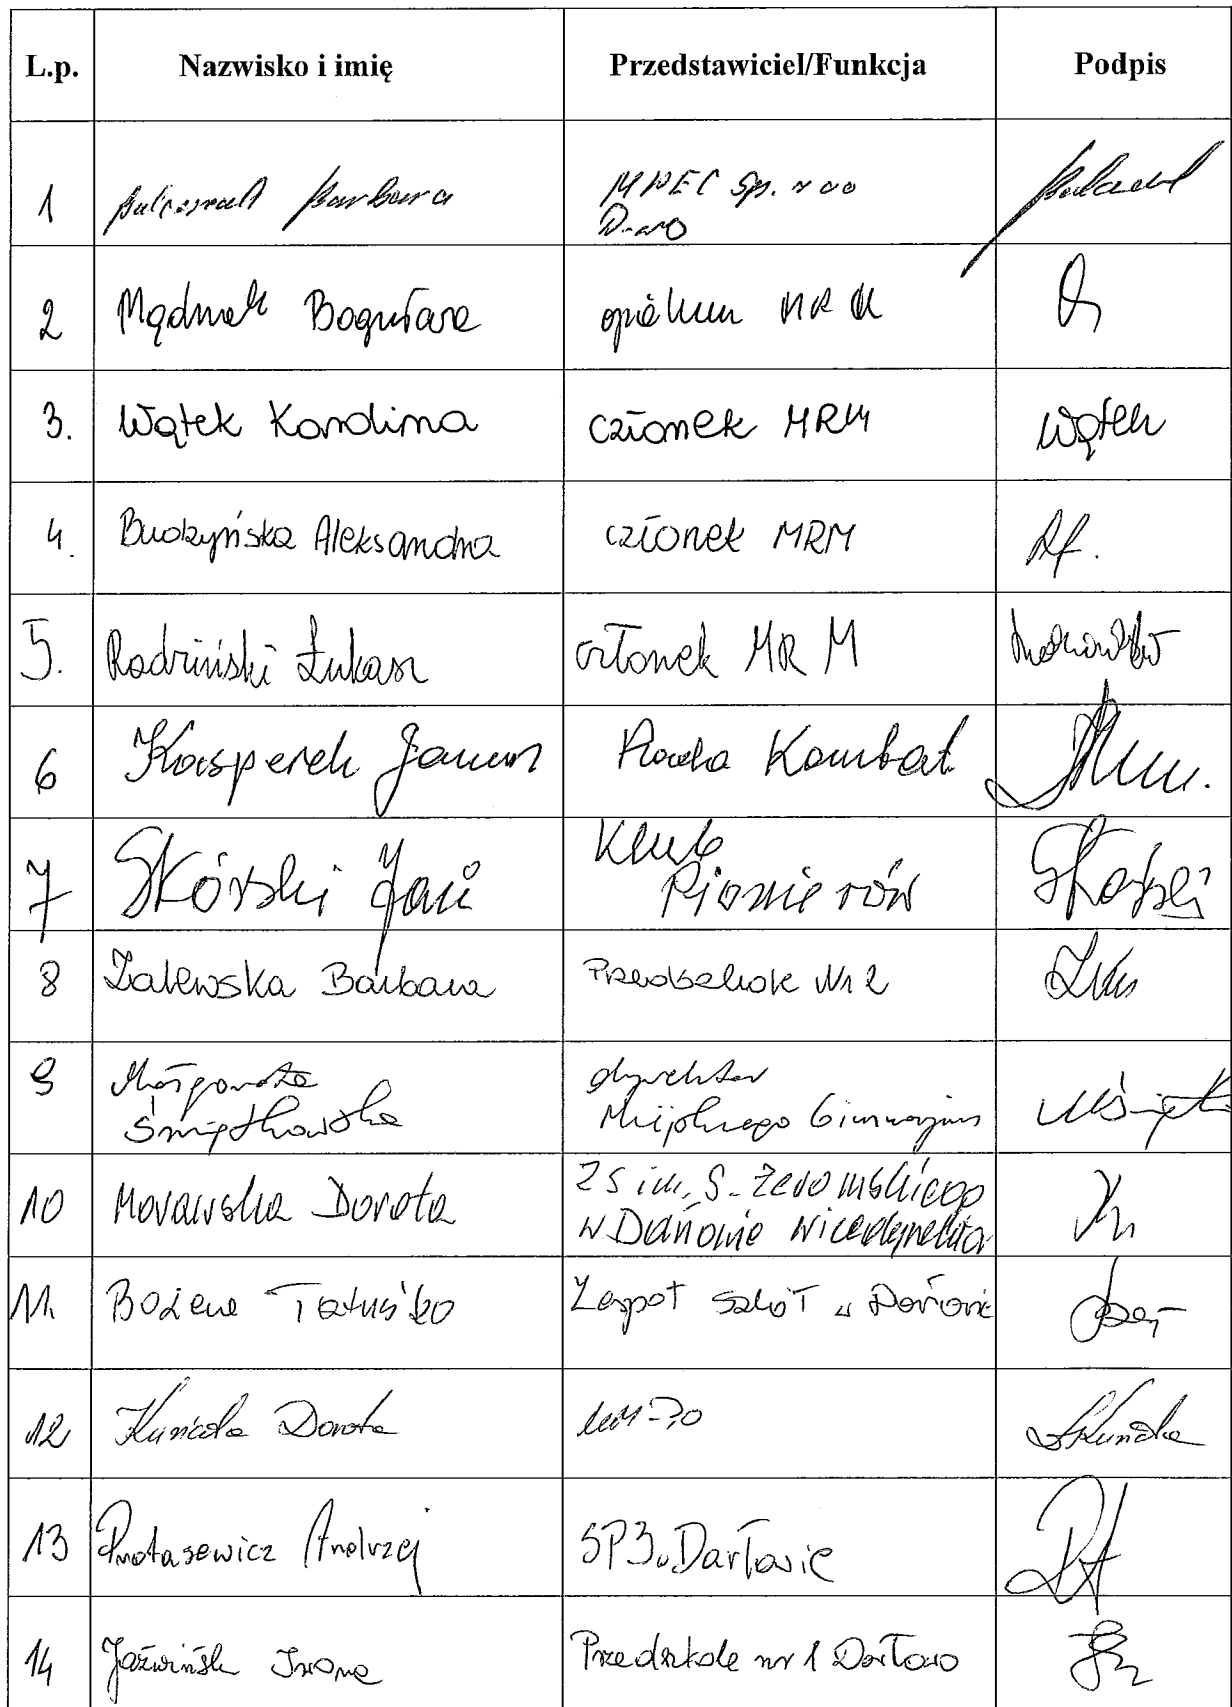 L.p. Nazwisko i imię Przedstawiciel/Funkcja Podpis
1 Barbara MPEC Sp. z oo
D-wo
2 Mądrzak Bogusława opiekun MRM
3. Wątek Karolina członek MRM Wątek
4. Budzyńska Aleksandra członek MRM
5. Radziński Łukasz członek MRM
6 Kasperek Janusz Rada Kombat
7 Skórski Jan Klub
Pionierów Skórski
8 Zalewska Barbara Przedszkole Nr 2
9 Małgorzata dyrektor
Świętkowska Miejskiego Gimnazjum
10 Morawska Dorota ZS im. S. Żeromskiego
w Darłowie wicedyrektor
11. Bożena Zespół Szkół w Darłowie
12 Kunicka Dorota
13 Protasewicz Andrzej SP3 w Darłowie
14 Jaźwińsk Irona Przedszkole nr 1 Darłowo